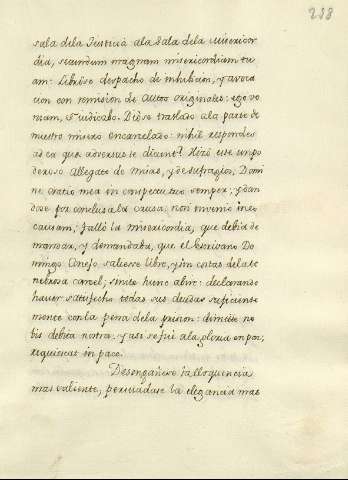 238
sala dela Justicia ala Sala dela Misericor
dia, secundum magnam misericordiam tu
am: Librose despacho de inhibicion, y avoca
cion con remision de Autos originales: ego vo
cam, et judicabo. Diòse traslado ala parte de
nuestro misero encarcelado: nihil respondes
ad ea quæ adversus te dicunt? Hizo este un po
deroso Allegato de misas, y de sufragios, Domi
ne oratio mea in conspectu tuo semper; y dan
dose por conclusa la causa: non invenio in eo
causam; fallò la misericordia, que debia de
mandar, y demandaba, que el Escrivano Do
mingo Anejo saliesse libre, y sin costas de la te
nebrosa carcel; sinite hunc abire: declarando
haver satisfecho todas sus deudas suficiente
mente con la pena de la prision: dimitte no
bis debita nostra. y asi se fuè a la gloria en paz,
requiescat in pace.
Desengañese la Eloquencia
mas valiente, persuadase la elegancia mas